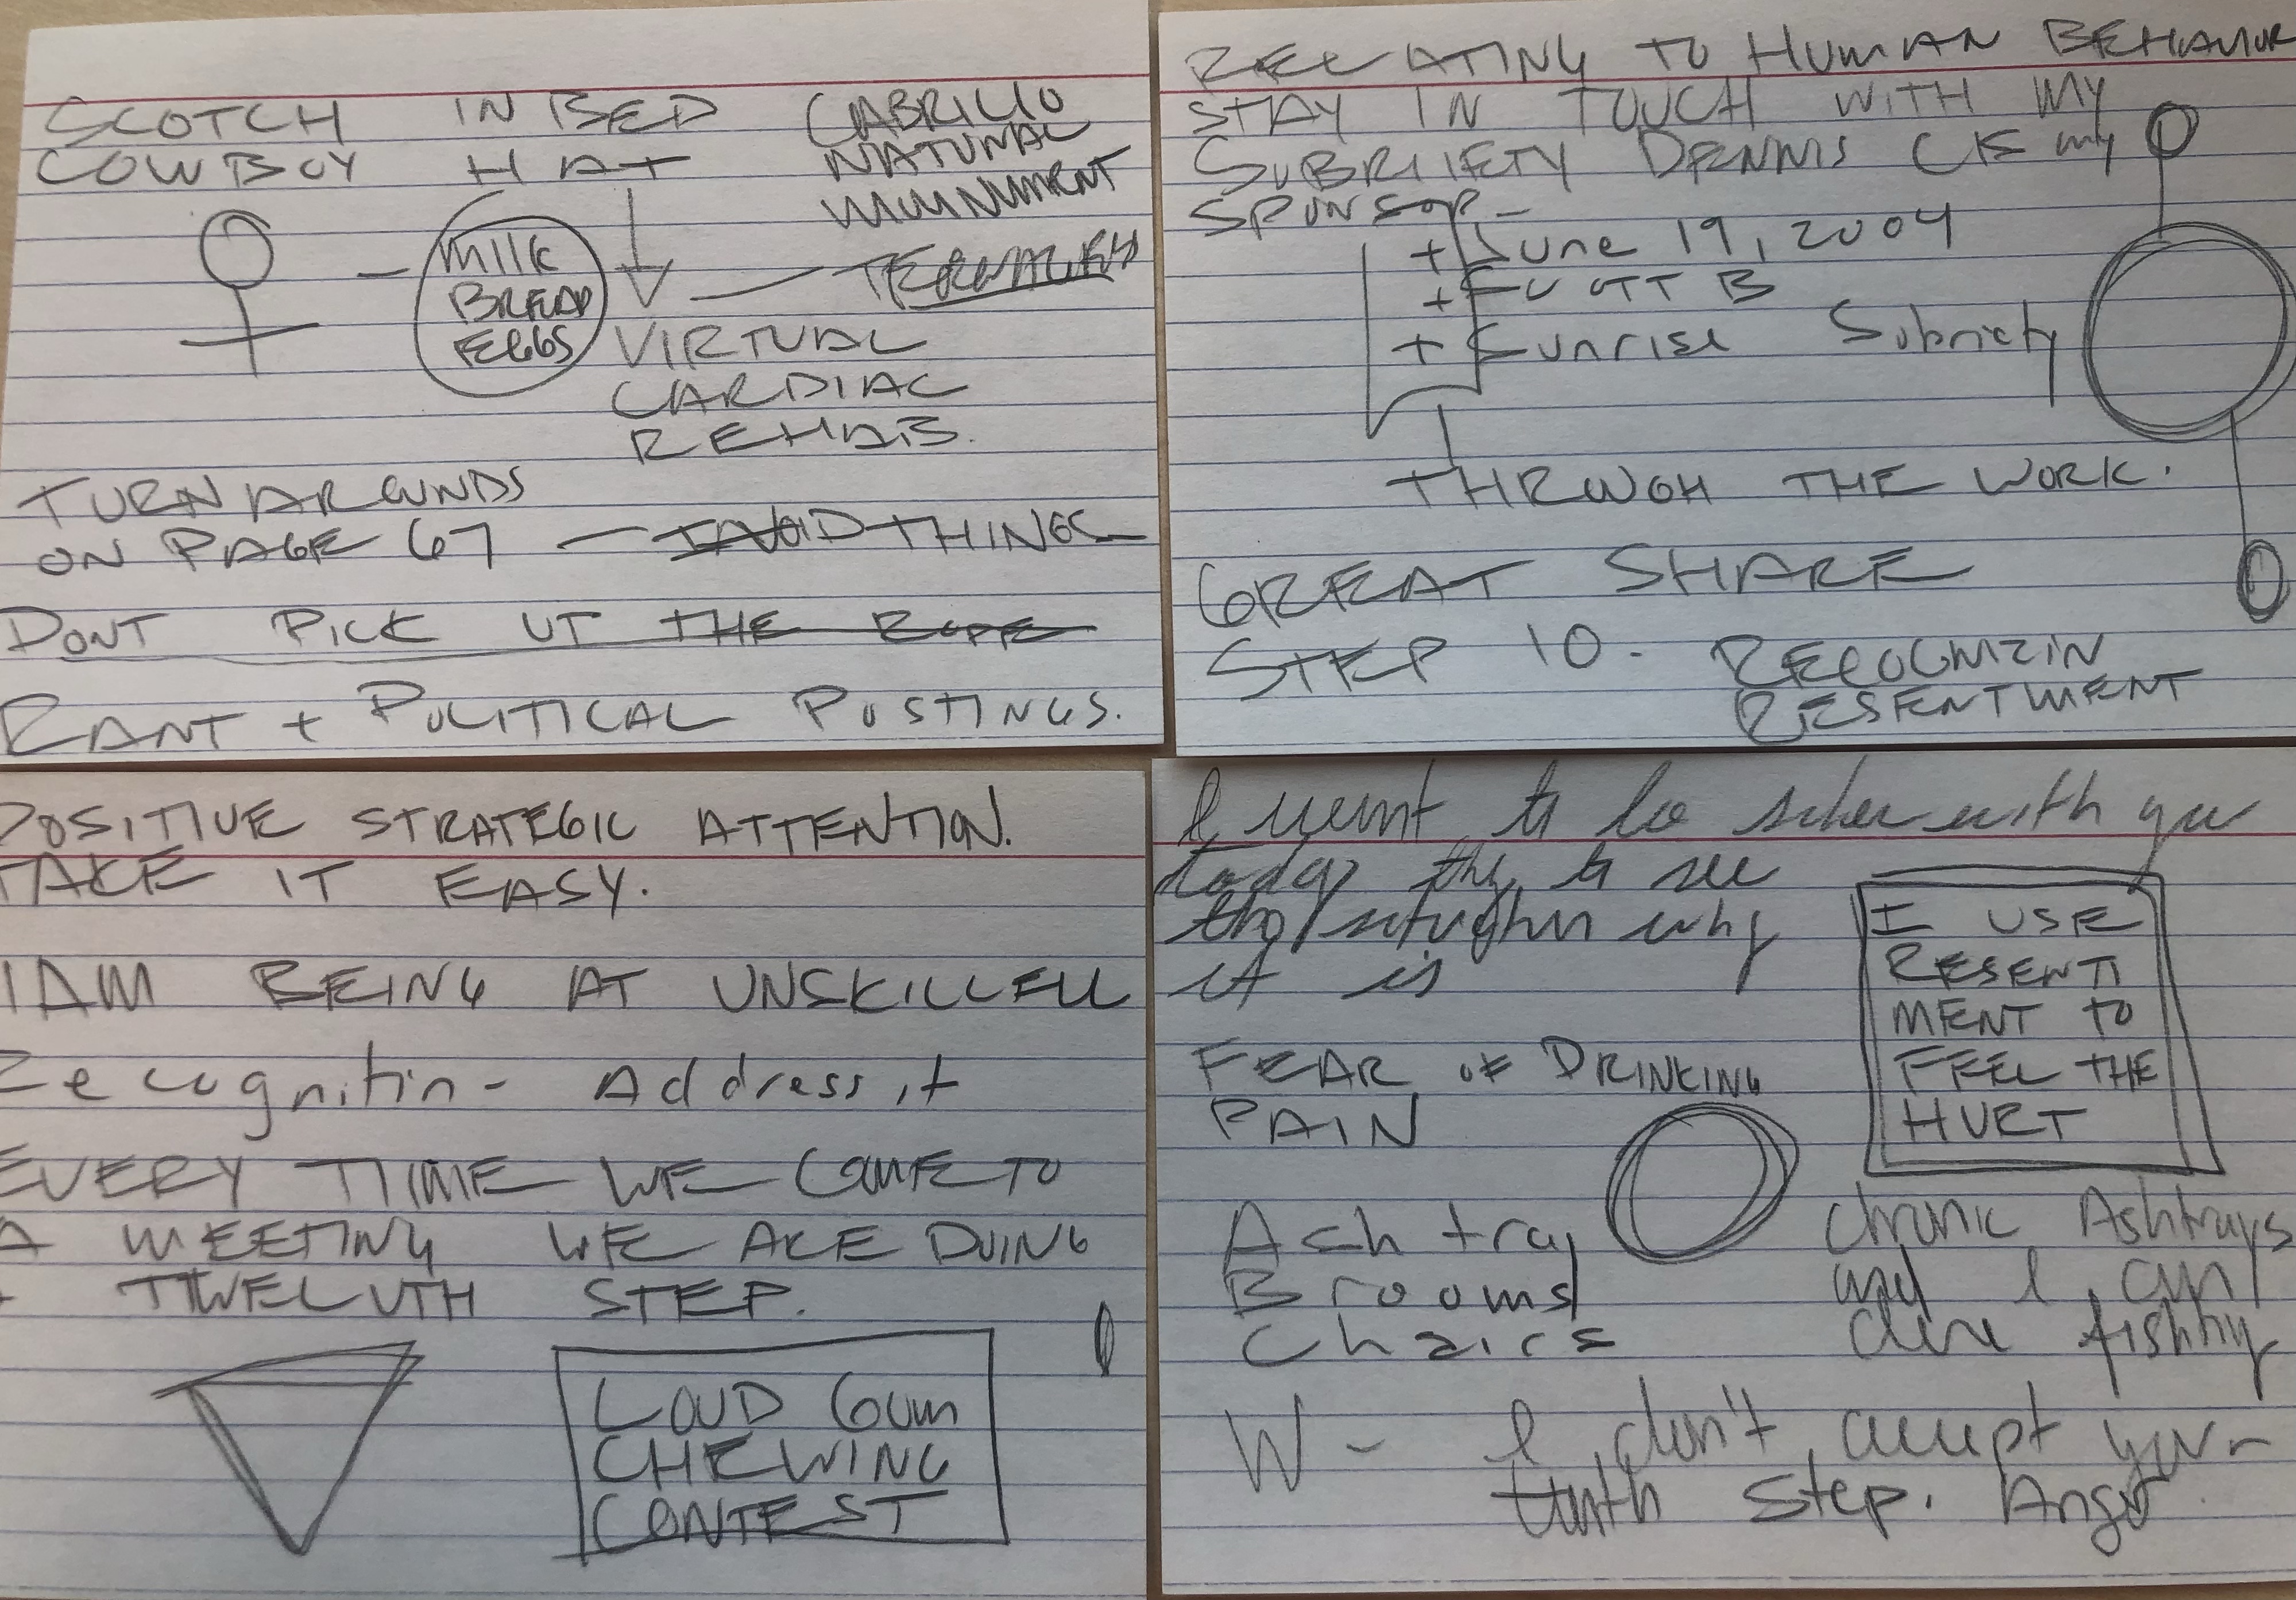 SCOTCH IN BED
COWBOY HAT
CABRILLO
NATUNAL
MUNNUMENT
MILK
BREAD
EGGS
VIRTUAL
CARDIAC
REHAB.
TURN AROUNDS
ON PAGE 67 — AVOID THINGS
DONT PICK UT THE ROPE
RANT + POLITICAL POSTINGS.
RELATING TO HUMAN BEHAVIOR
STAY IN TOUCH WITH MY
SUBRIETY DENNIS C IS my
SPUNSOR -
+ June 19, 2004
+ SCOTT B
+ Sunrise Subriety
THROUGH THE WORK.
GREAT SHARE
STEP 10. RECOGNIZIN
RESENTMENT
POSITIVE STRATEGIC ATTENTION.
TAKE IT EASY.
I AM BEING AT UNSKILLFUL
Recognitin - Address it
EVERY TIME WE COME TO
A MEETING WE ARE DUING
A TWELUTH STEP.
LOUD GUM
CHEWING
CONTEST
I want to be sober with you
today to see
why
it is
I USE
RESENTI
MENT TO
FEEL THE
HURT
FEAR OF DRINKING
PAIN
Ash tray
Brooms
Chairs
Chronic Ashtrays
and I can
fishing
W - I don't accept your
tenth step. Anger